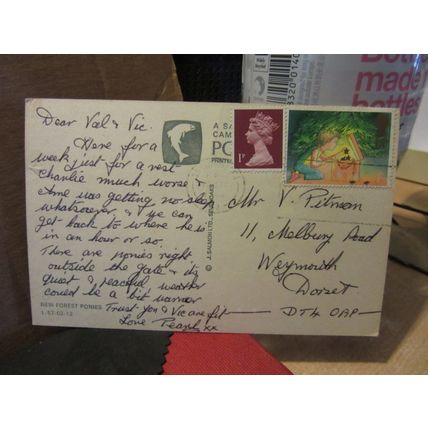 Dear Val & Vic.
Here for a
week just for a rest
Charlie much worse &
Anne was getting no sleep
whatsoever & we can
get back to where he is
in an hour or so.
There are ponies right
outside the gate & its
quiet & peaceful weather
could be a bit warmer
Trust you & Vic are fit
Love xx
NEW FOREST PONIES
1-57-02-12
A SA
CAM
PO
PRINTE
© J. SALMON LTD., SEVENOAKS
1P
Mr V. Pitman
11, Melbury Road
Weymouth
Dorset
DT4 0AP
made
bottles
8320 0140